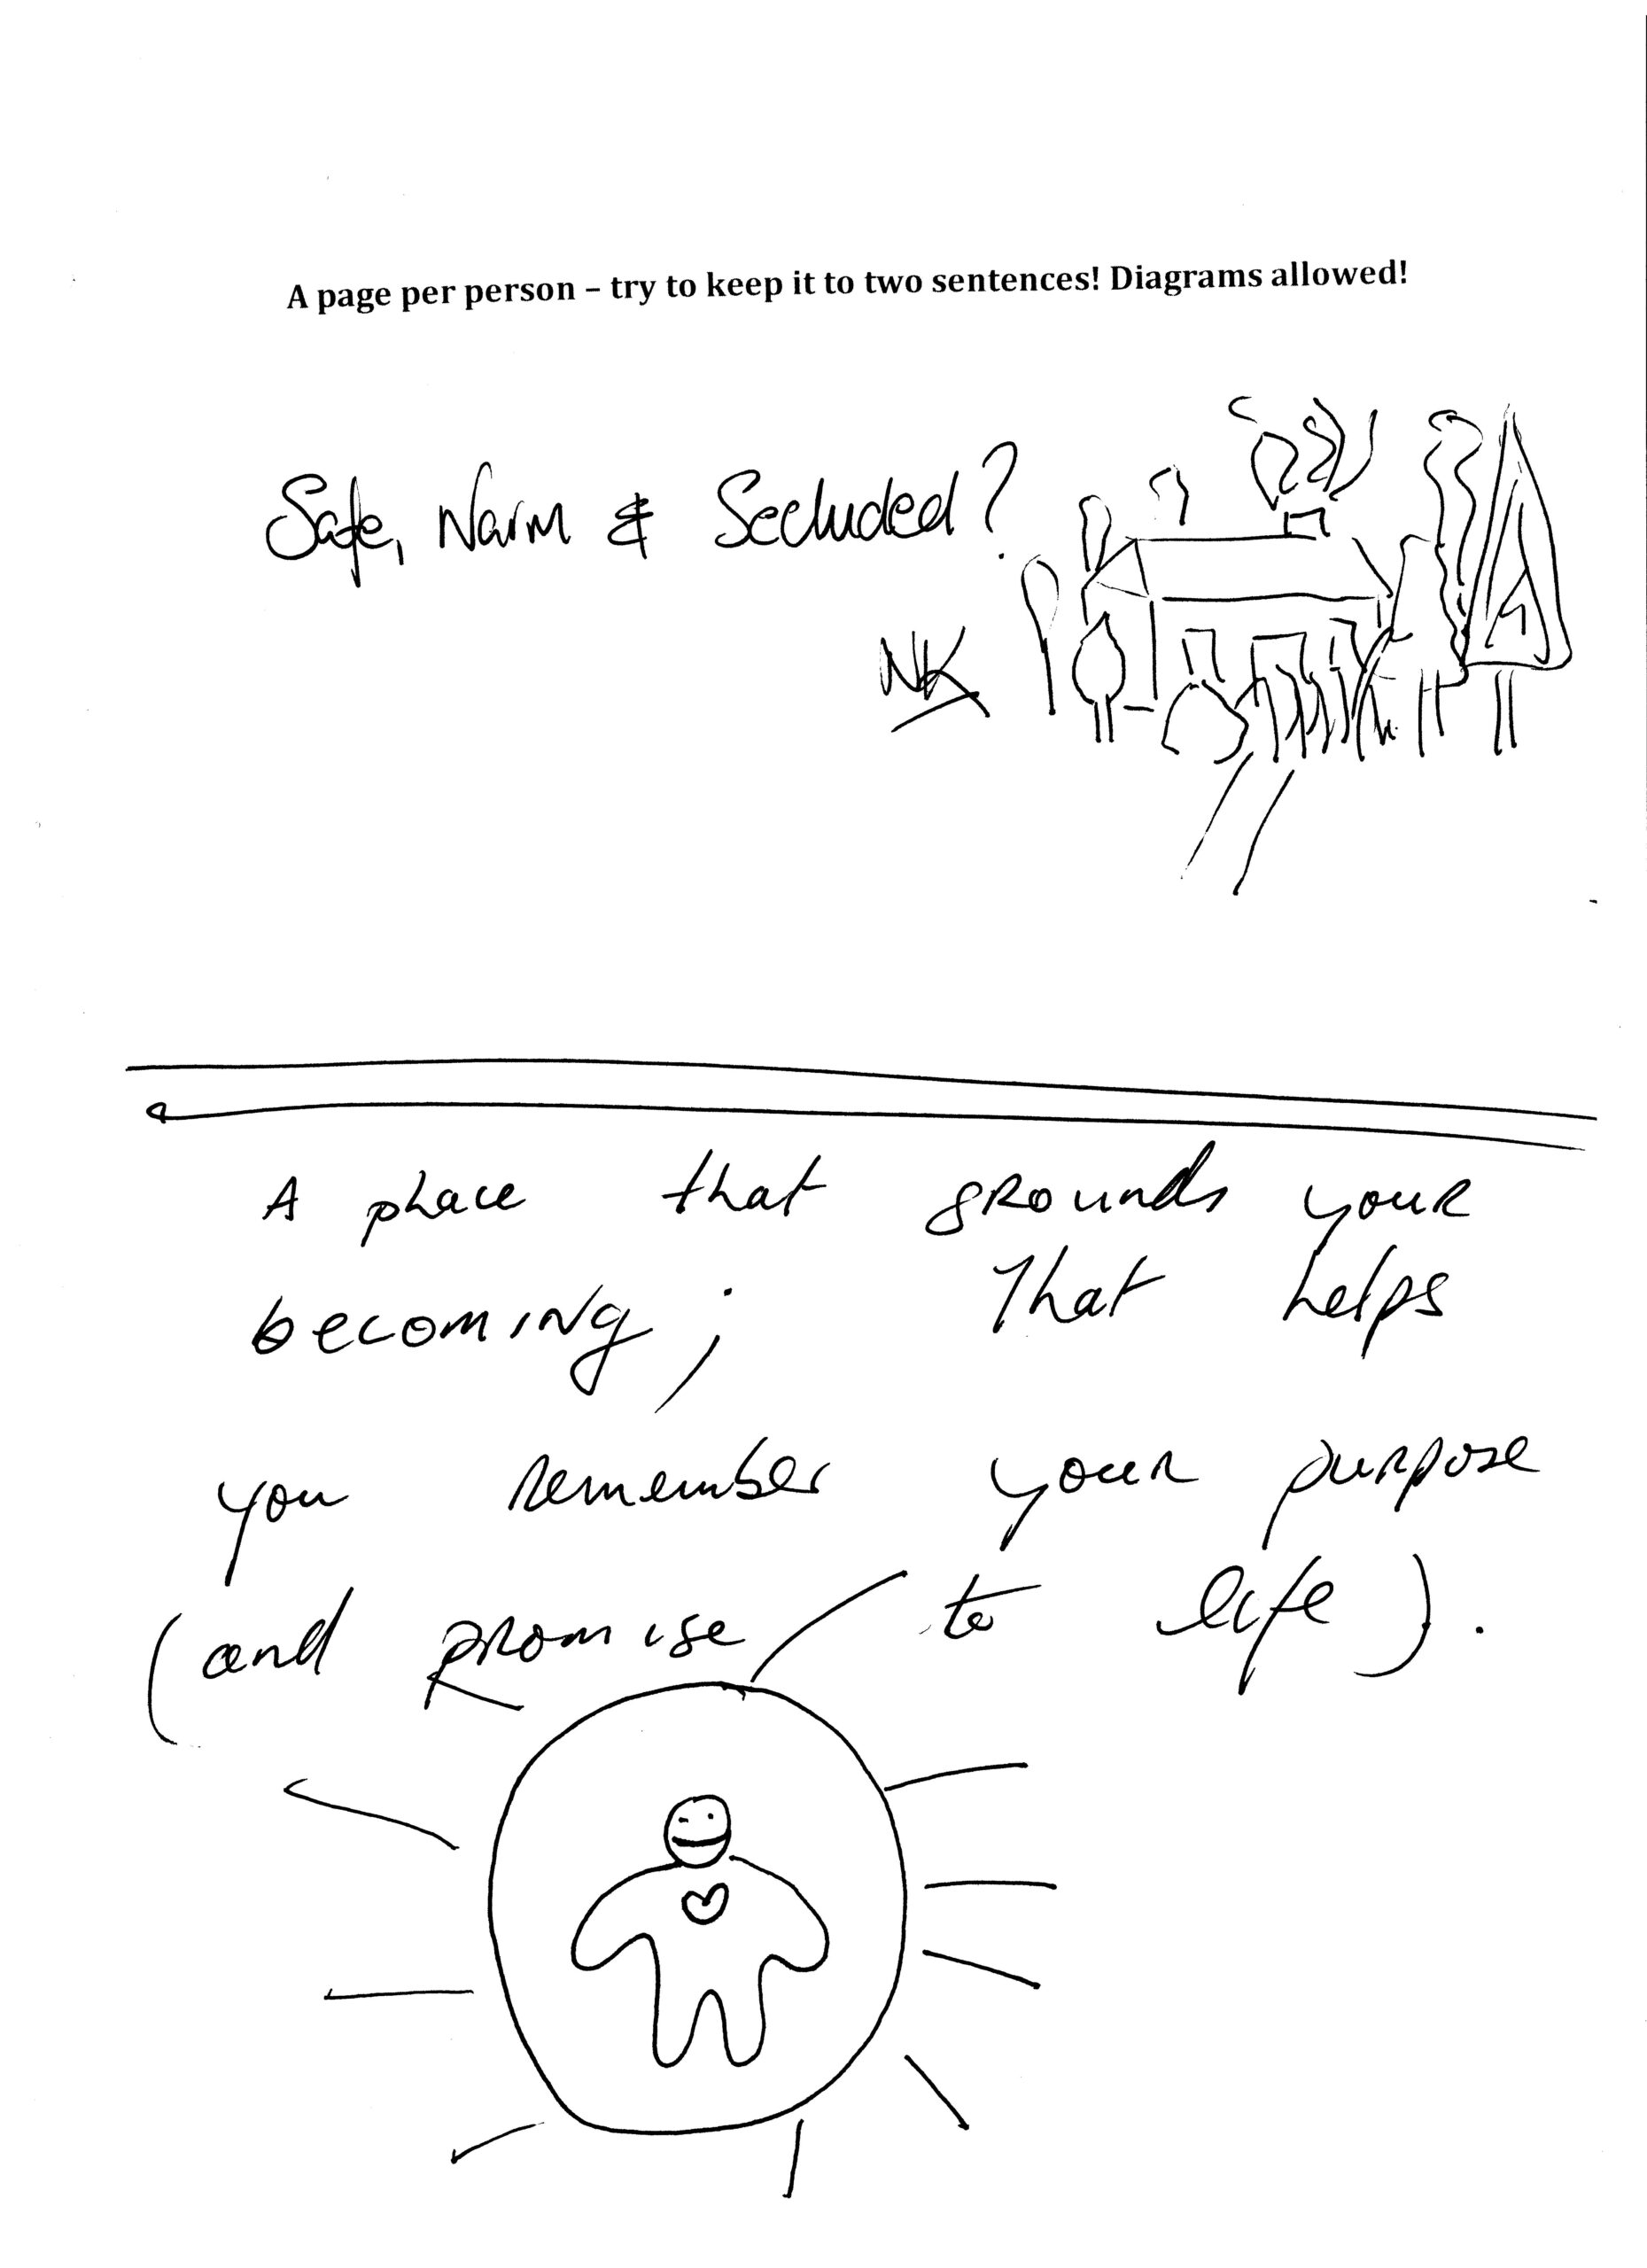 A page per person – try to keep it to two sentences! Diagrams allowed!
Safe, Warm & Secluded?
NK
A place that grounds your
becoming; That helps
you remember your purpose
(and promise to life).